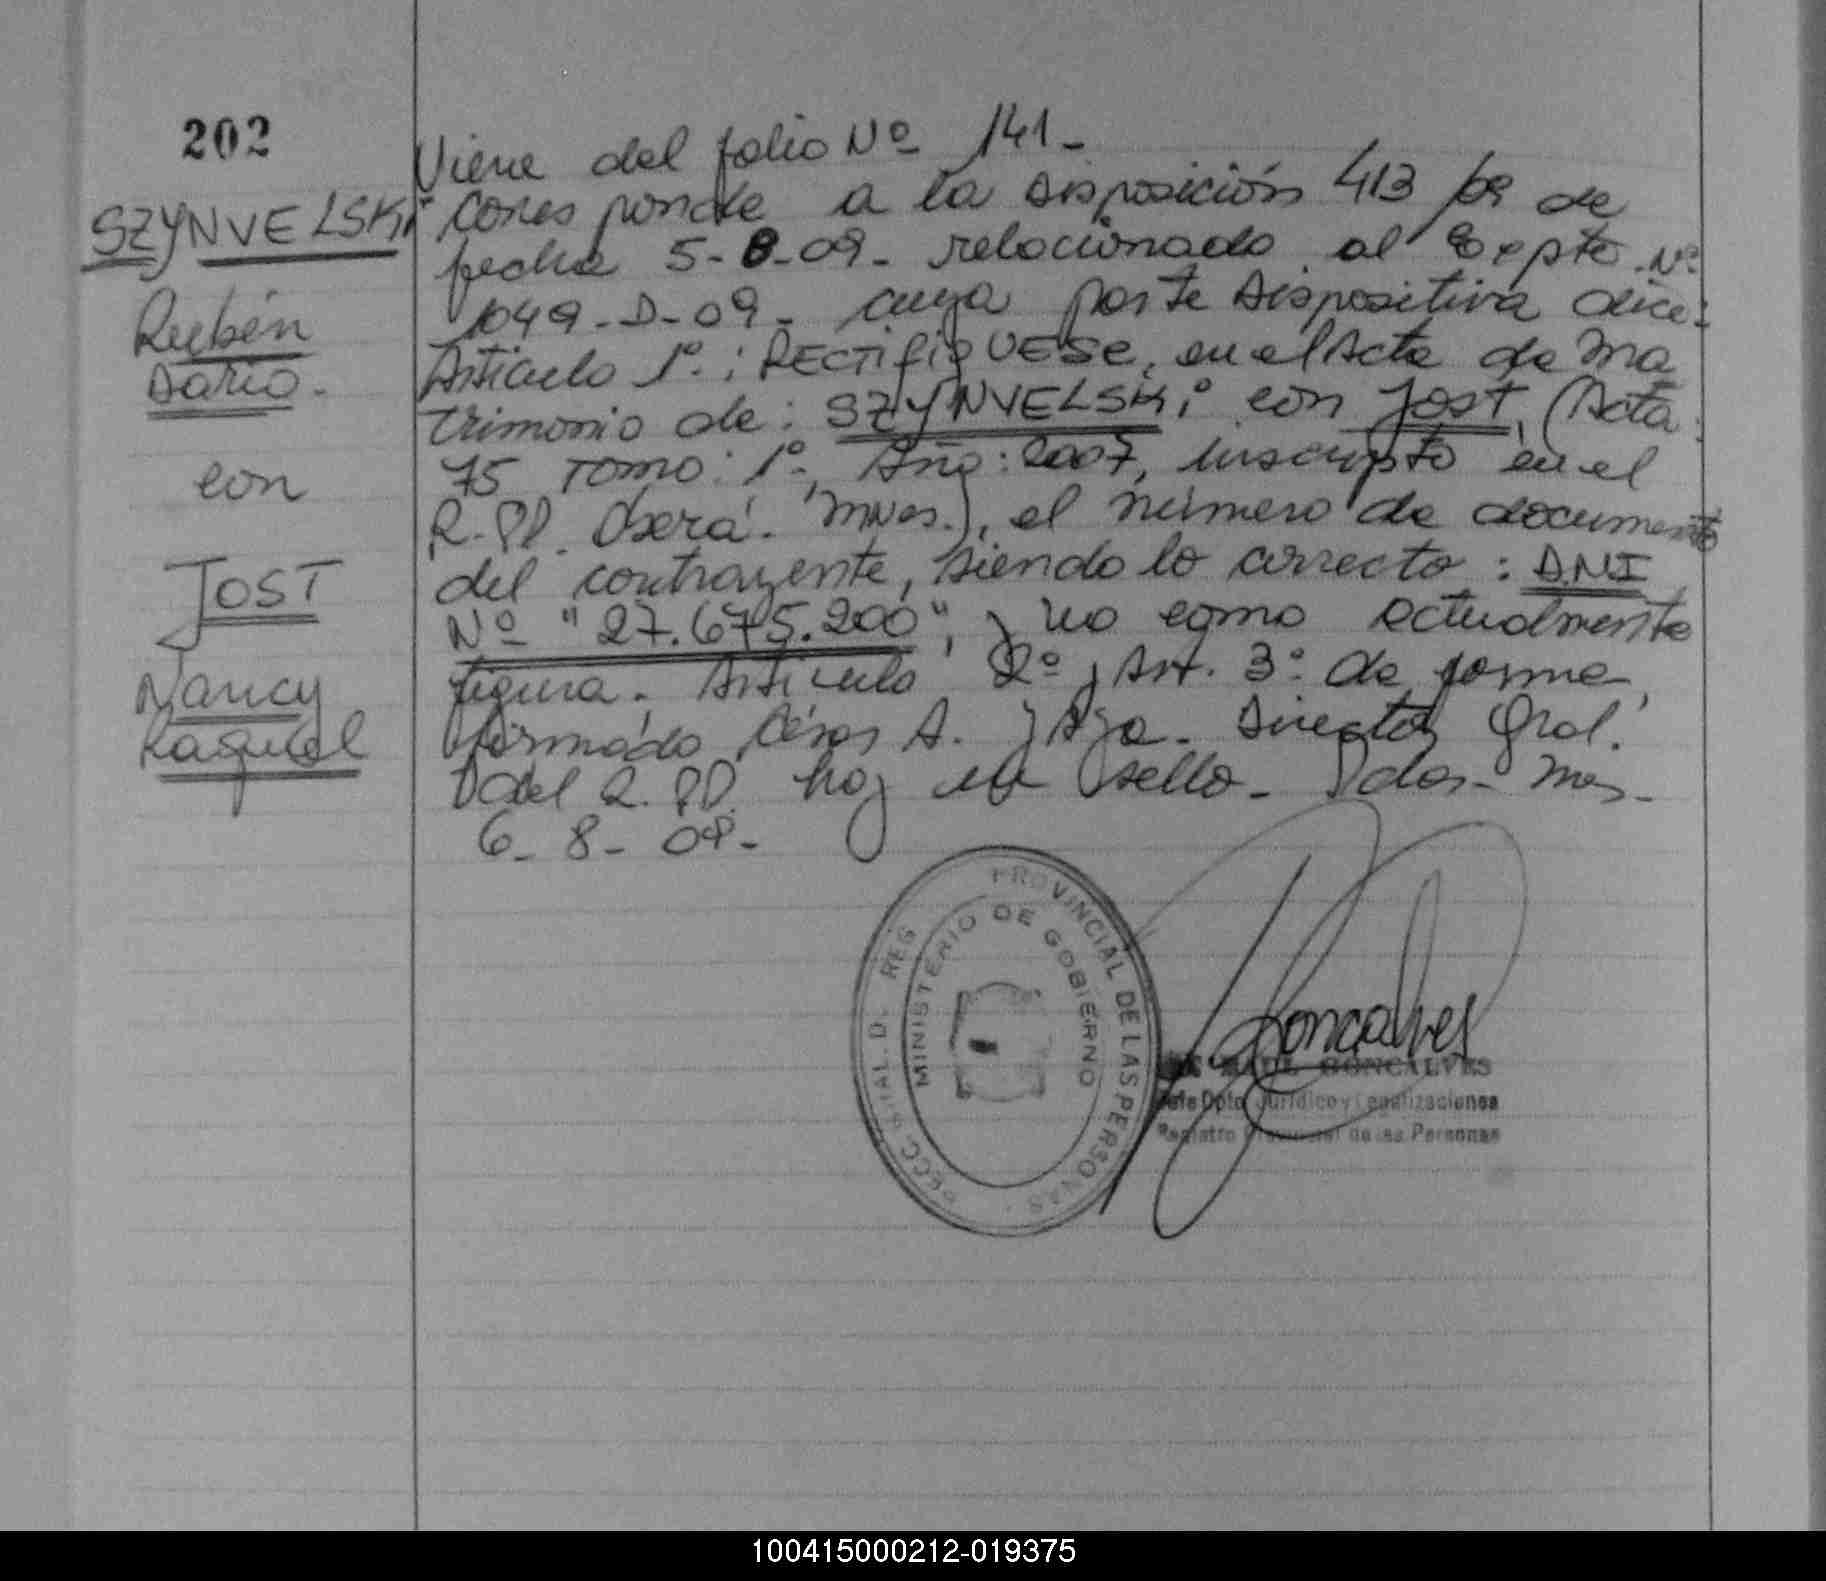 202
SZYNVELSKi
Rubén
Darío.
con
JOST
Nancy
Raquel
Viene del folio Nº 141-
Corresponde a la Disposición 413/09 de
fecha 5-8-09- relacionado al Expte. Nº
1049-D-09- cuya parte Dispositiva dice:
Artículo 1º.: RECTIFIQUESE, en el Acta de Ma
trimonio de: SZYNVELSKi con Jost, (Acta:
75 Tomo: 1º, Año: 2007, inscripto en el
R.PP. Oberá. Mnes.), el número de documento
del contrayente, siendo lo correcto: DNI
Nº "27.675.200", y no como actualmente
figura. Artículo 2º y Art. 3º de forma,
firmado César A. Director Gral.
del R.PP. hay un sello- Pdas- Mnes-
6-8-09-
REG PROVINCIAL DE LAS PERSONAS
MINISTERIO DE GOBIERNO
Goncalves
RAUL GONCALVES
Jefe Dpto Jurídico y Legalizaciones
Registro Provincial de las Personas
100415000212-019375